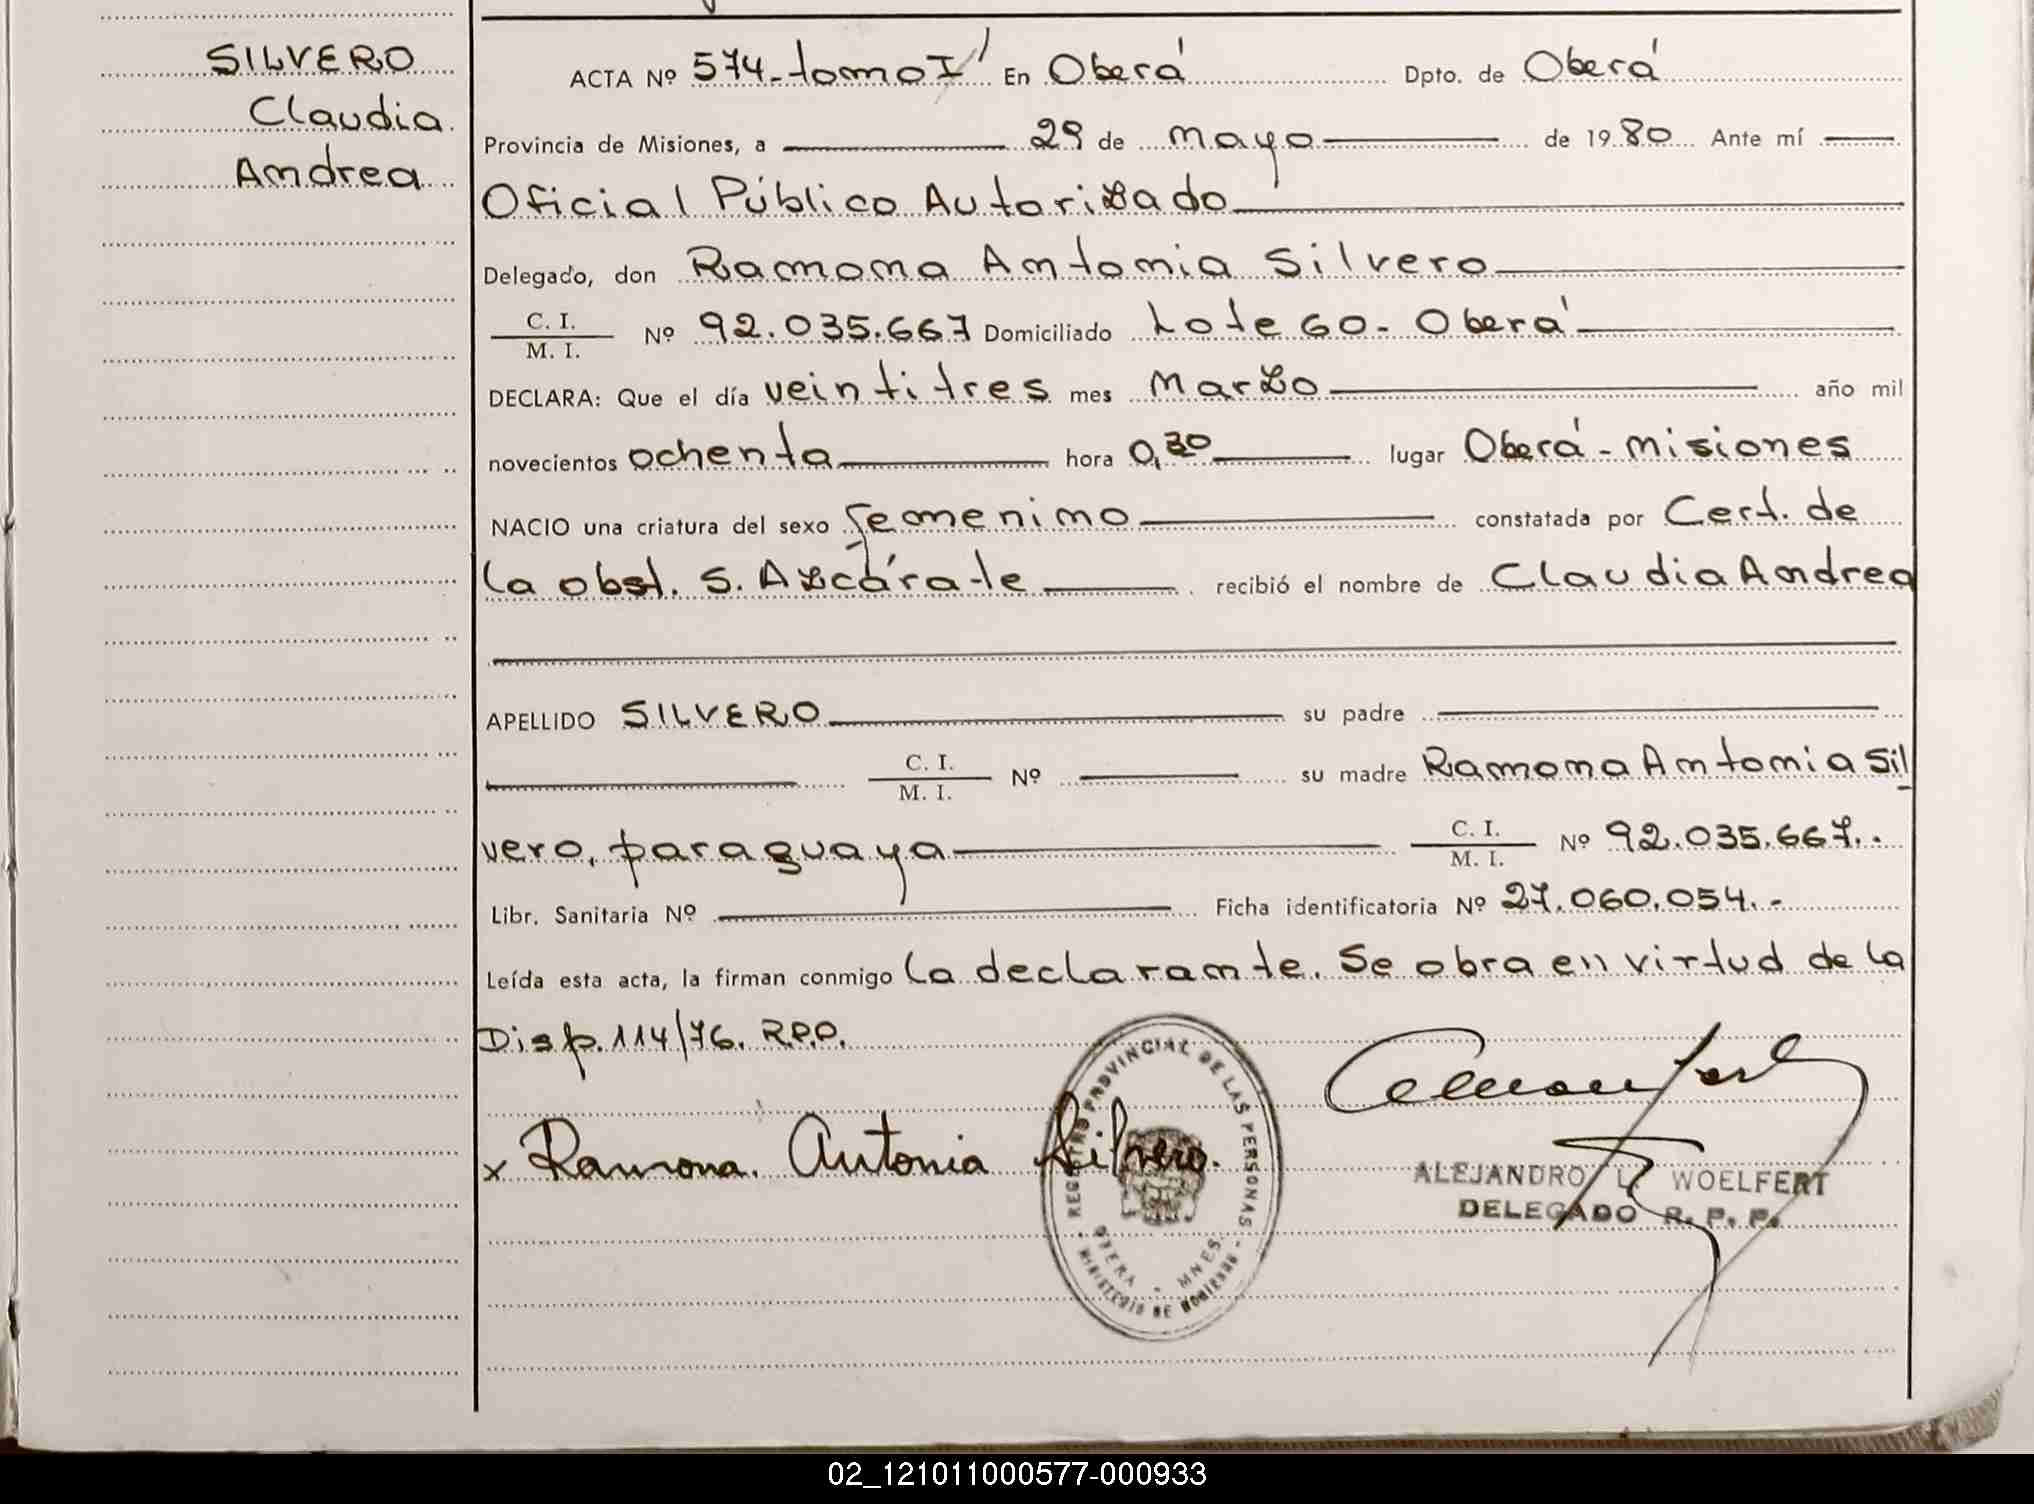 SILVERO
Claudia
Andrea
ACTA Nº 574-tomo I En Oberá Dpto. de Oberá
Provincia de Misiones, a 29 de mayo de 1980 Ante mí
Oficial Público Autorizado
Delegado, don Ramona Antonia Silvero
C. I.
M. I. Nº 92.035.667 Domiciliado Lote 60- Oberá
DECLARA: Que el día veintitres mes Marzo año mil
novecientos ochenta hora 0,30 lugar Oberá - misiones
NACIO una criatura del sexo femenino constatada por Cert. de
la obst. S. Azcárate recibió el nombre de Claudia Andrea
APELLIDO SILVERO su padre
C. I.
M. I. Nº su madre Ramona Antonia Sil
vero, paraguaya C. I.
M. I. Nº 92.035.667.
Libr. Sanitaria Nº Ficha identificatoria Nº 27.060.054.-
Leída esta acta, la firman conmigo la declarante. Se obra en virtud de la
Disp. 114/76. R.P.P.
x Ramona Antonia Silvero.
REGISTRO PROVINCIAL DE LAS PERSONAS
OBERA - MNES.
MINISTERIO DE GOBIERNO
ALEJANDRO L. WOELFERT
DELEGADO R. P. P.
02_121011000577-000933